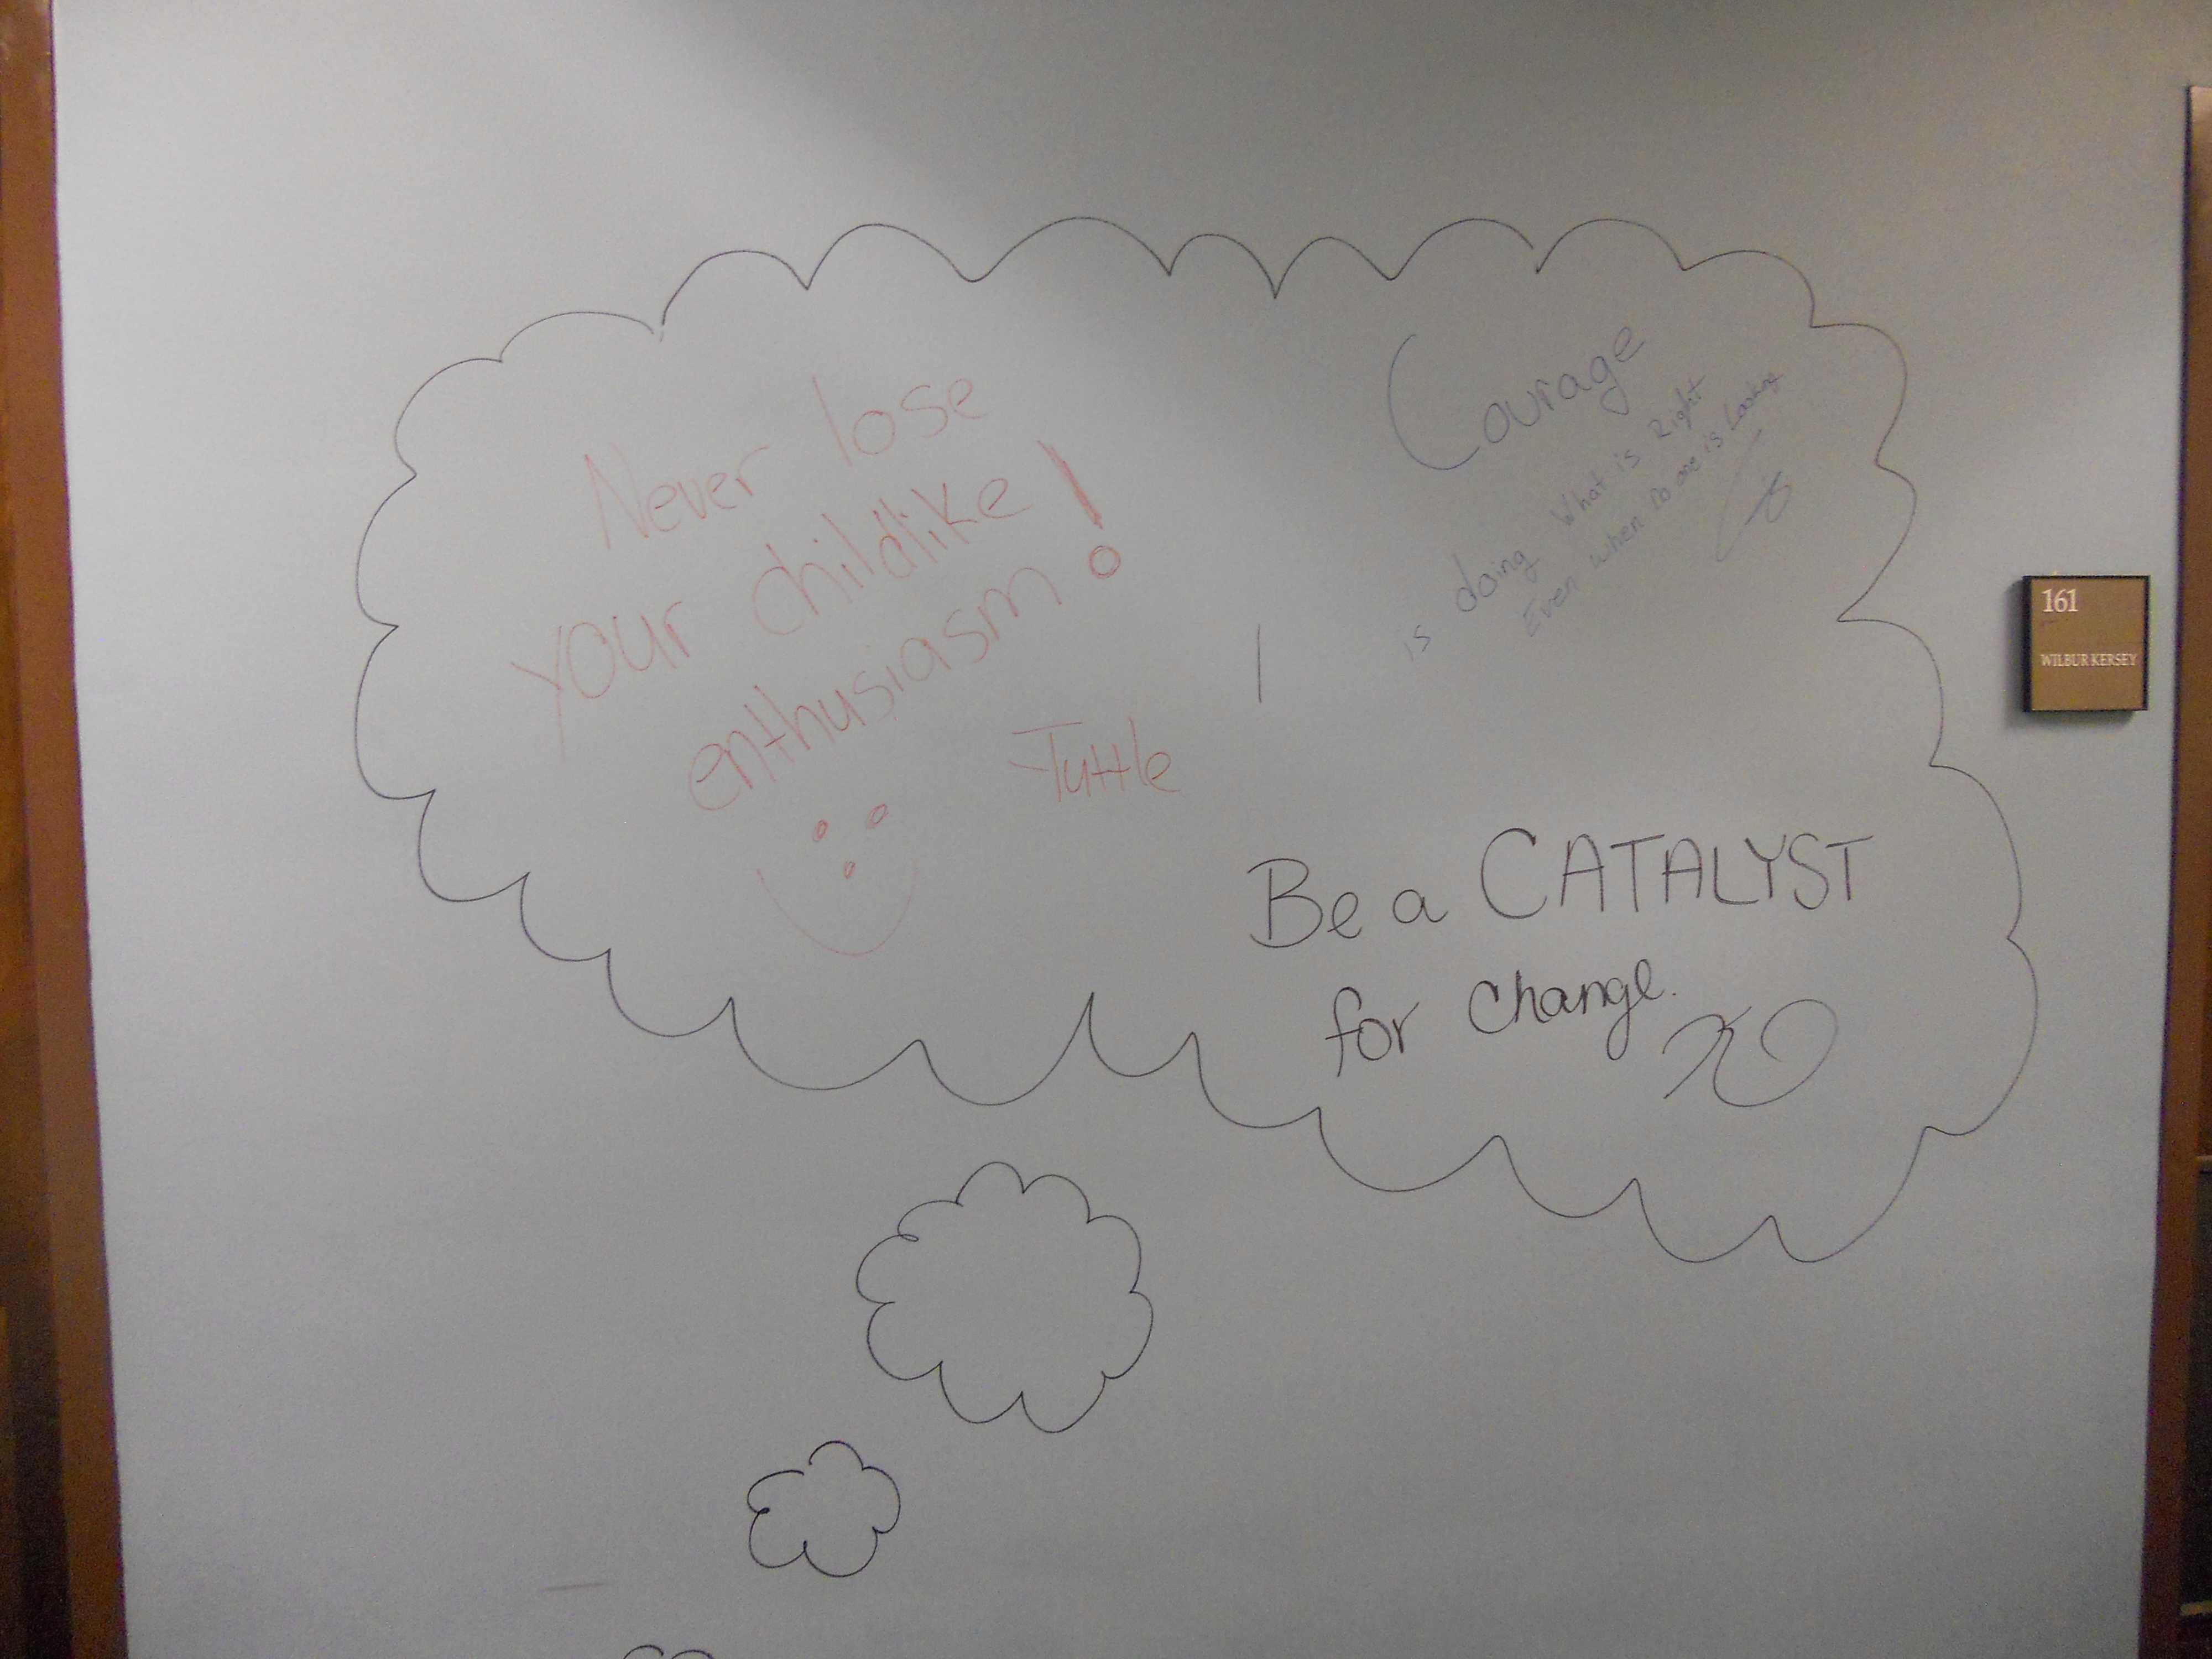 Never lose
your childlike
enthusiasm!
-Tuttle
Courage
is doing What is Right
Even when no one is Looking
Be a CATALYST
for change.
161
WILBUR KERSEY